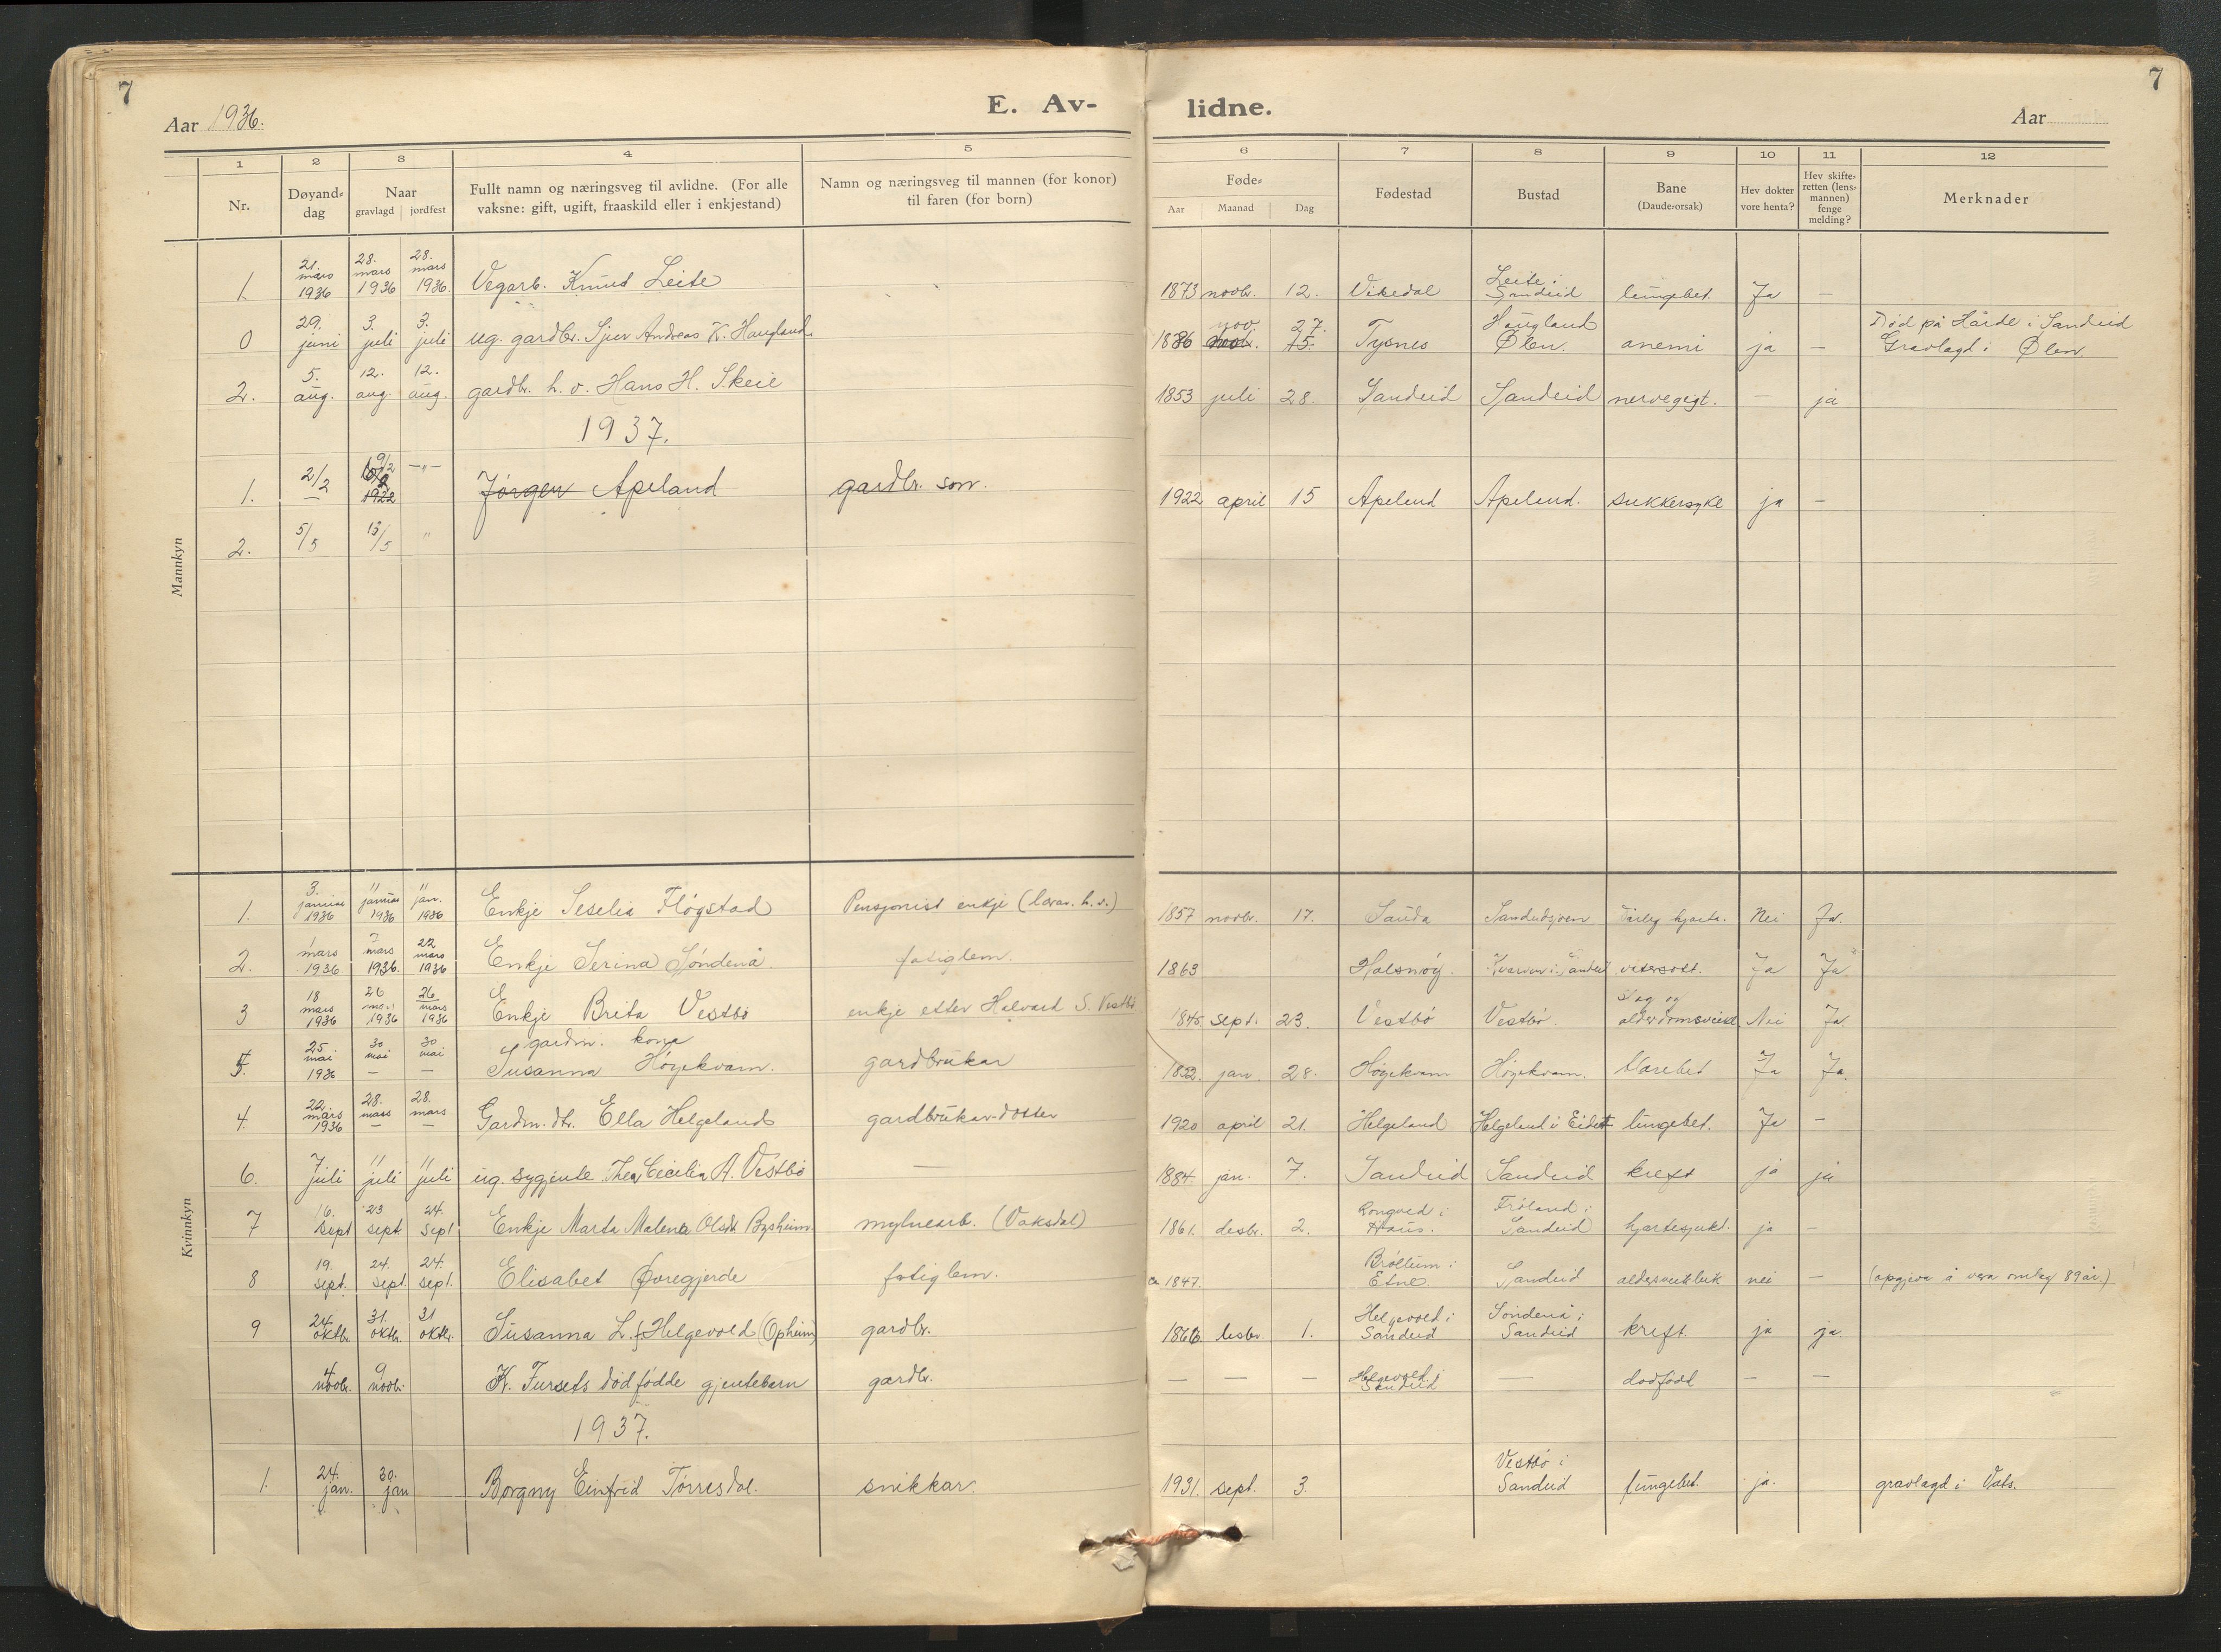 7
7
Aar 1936.
E. Av-
lidne.
Aar
1
2
3
4
5
6
7
8
9
10
11
12
Nr.
Døyand-
dag
Naar
gravlagd | jordfest
Fullt namn og næringsveg til avlidne. (For alle
vaksne: gift, ugift, fraaskild eller i enkjestand)
Namn og næringsveg til mannen (for konor)
til faren (for born)
Føde-
Aar Maanad Dag
Fødestad
Bustad
Bane
(Daude-orsak)
Hev dokter
vore henta?
Hev skifte-
retten (lens-
mannen)
fenge
melding?
Merknader
Mannkyn
1. 21. mars 1936 28. mars 1936 28. mars 1936. Vegarb. Knut Leite 1873 novbr. 12. Vikedal Leite i Sandeid lungebet. Ja —
0 29. juni 3. juli 3. juli ug. gardbr. Sjur Andreas K. Haugland. 1886 nov. 27. Tysnes Haugland Ølen. anemi ja — Død på Hårde i Sandeid Gravlagd i Ølen.
2. 5. aug. 12. aug. 12. aug. gardbr. h. v. Hans H. Skeie 1853 juli 28. Sandeid Sandeid nervegigt. — ja
1937.
1. 2/2 9/2 1922 —"— Jørgen Apeland gardbr. son. 1922 april 15 Apelend Apelend. sukkersyke ja -
2. 5/5 13/5 "
Kvinnkyn
1. 3. januar 1936 11 januar 1936 11 jan. 1936 Enkje Seselia Fløgstad Pensjonist enkje (lærar. h. v.) 1857 novbr. 17. Sauda Sandeidsjøen Dårleg hjarte. Nei Ja.
2. 1 mars 1936 7 mars 1936. 22 mars 1936 Enkje Serina Søndenå fatiglem. 1863 Halsnøy. Kvarven i Sandeid vatersott. Ja Ja
3 18 mars 1936 26 mars 1936 26 mars 1936 Enkje Brita Vestbø enkje etter Halvard S. Vestbø 1845 sept. 23. Vestbø Vestbø. Slag og alderdomsveikl. Nei Ja.
5. 25. mai 1936 30 mai — 30 mai — gardm. kona Susanna Høyekvam. gardbrukar 1852. jan. 28. Høyekvam Høyekvam. blærebet Ja Ja.
4. 22. mars 1936 28. mars — 28. mars — Gardm. dtr. Ella Helgeland gardbrukar-dotter 1920 april 21. Helgeland Helgeland i Eidet lungebet. Ja —
6. 7 juli 11 juli 11 juli ug. sygjente Thea Cecilia A. Vestbø — 1884 jan. 7. Sandeid Sandeid kreft ja ja
7 16. sept 23 sept. 24. sept Enkje Marta Malena Olsdt. Bysheim. mylnearb. (Vaksdal) 1861. desbr. 2. Rongved i Haus. Frøland i Sandeid hjartesjukd. ja —
8 19. sept. 24. sept 24. sept. Elisabet Øvregjerde fatiglem. ca 1847. Brølteim i Etne. Sandeid aldersveikleik nei — (opgjeve å vera omlag 89 år.)
9 24. oktbr. 31. oktbr. 31 oktbr. Susanna L. f Helgevold (Opheim) gardbr. 1866. desbr. 1. Helgevold i Sandeid Søndenå i Sandeid kreft. ja ja.
4 novbr. 9 novbr. K. Fursets dødfødde gjentebarn gardbr. — — — Helgevold i Sandeid — dødfødd — —
1937.
1. 24. jan. 30. jan Borgny Einfrid Tørresdal. snikkar. 1931. sept. 3. Vestbø i Sandeid lungebet. ja. gravlagd i Vats.